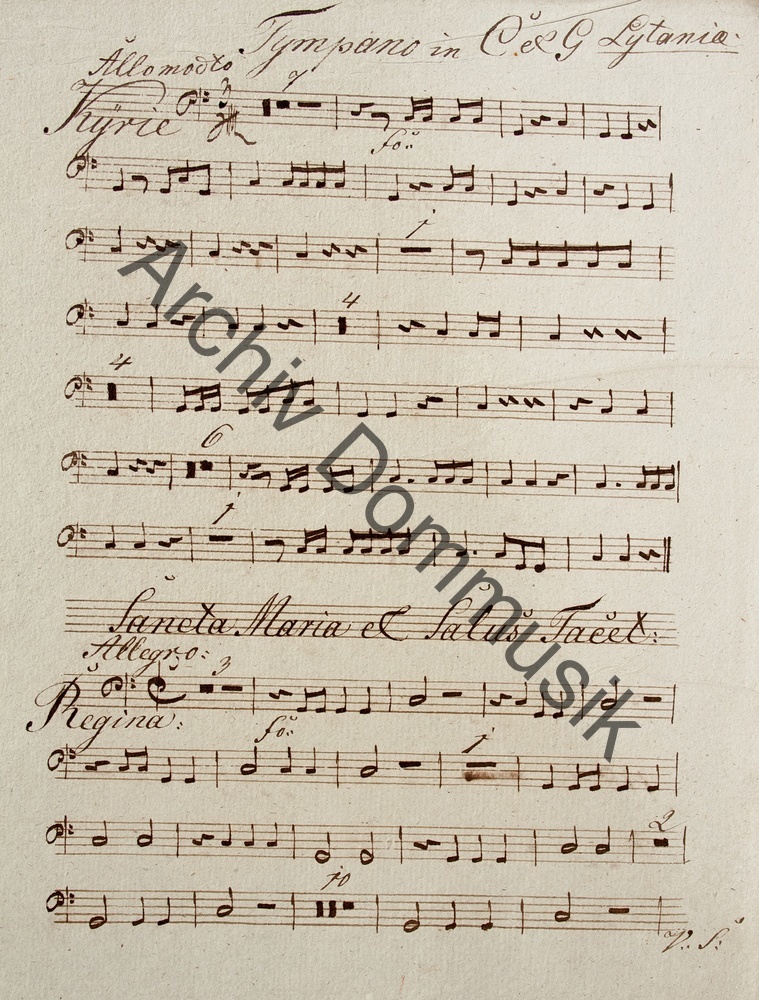 Tympano in C et G Lytaniæ.
Allomodto
Kÿrie
3
7
fo:
1
4
4
6
1
Sancta Maria et Salus Tacet:
Allegro:
Regina:
3
fo:
1
2
10
V: S:
Archiv Dommusik